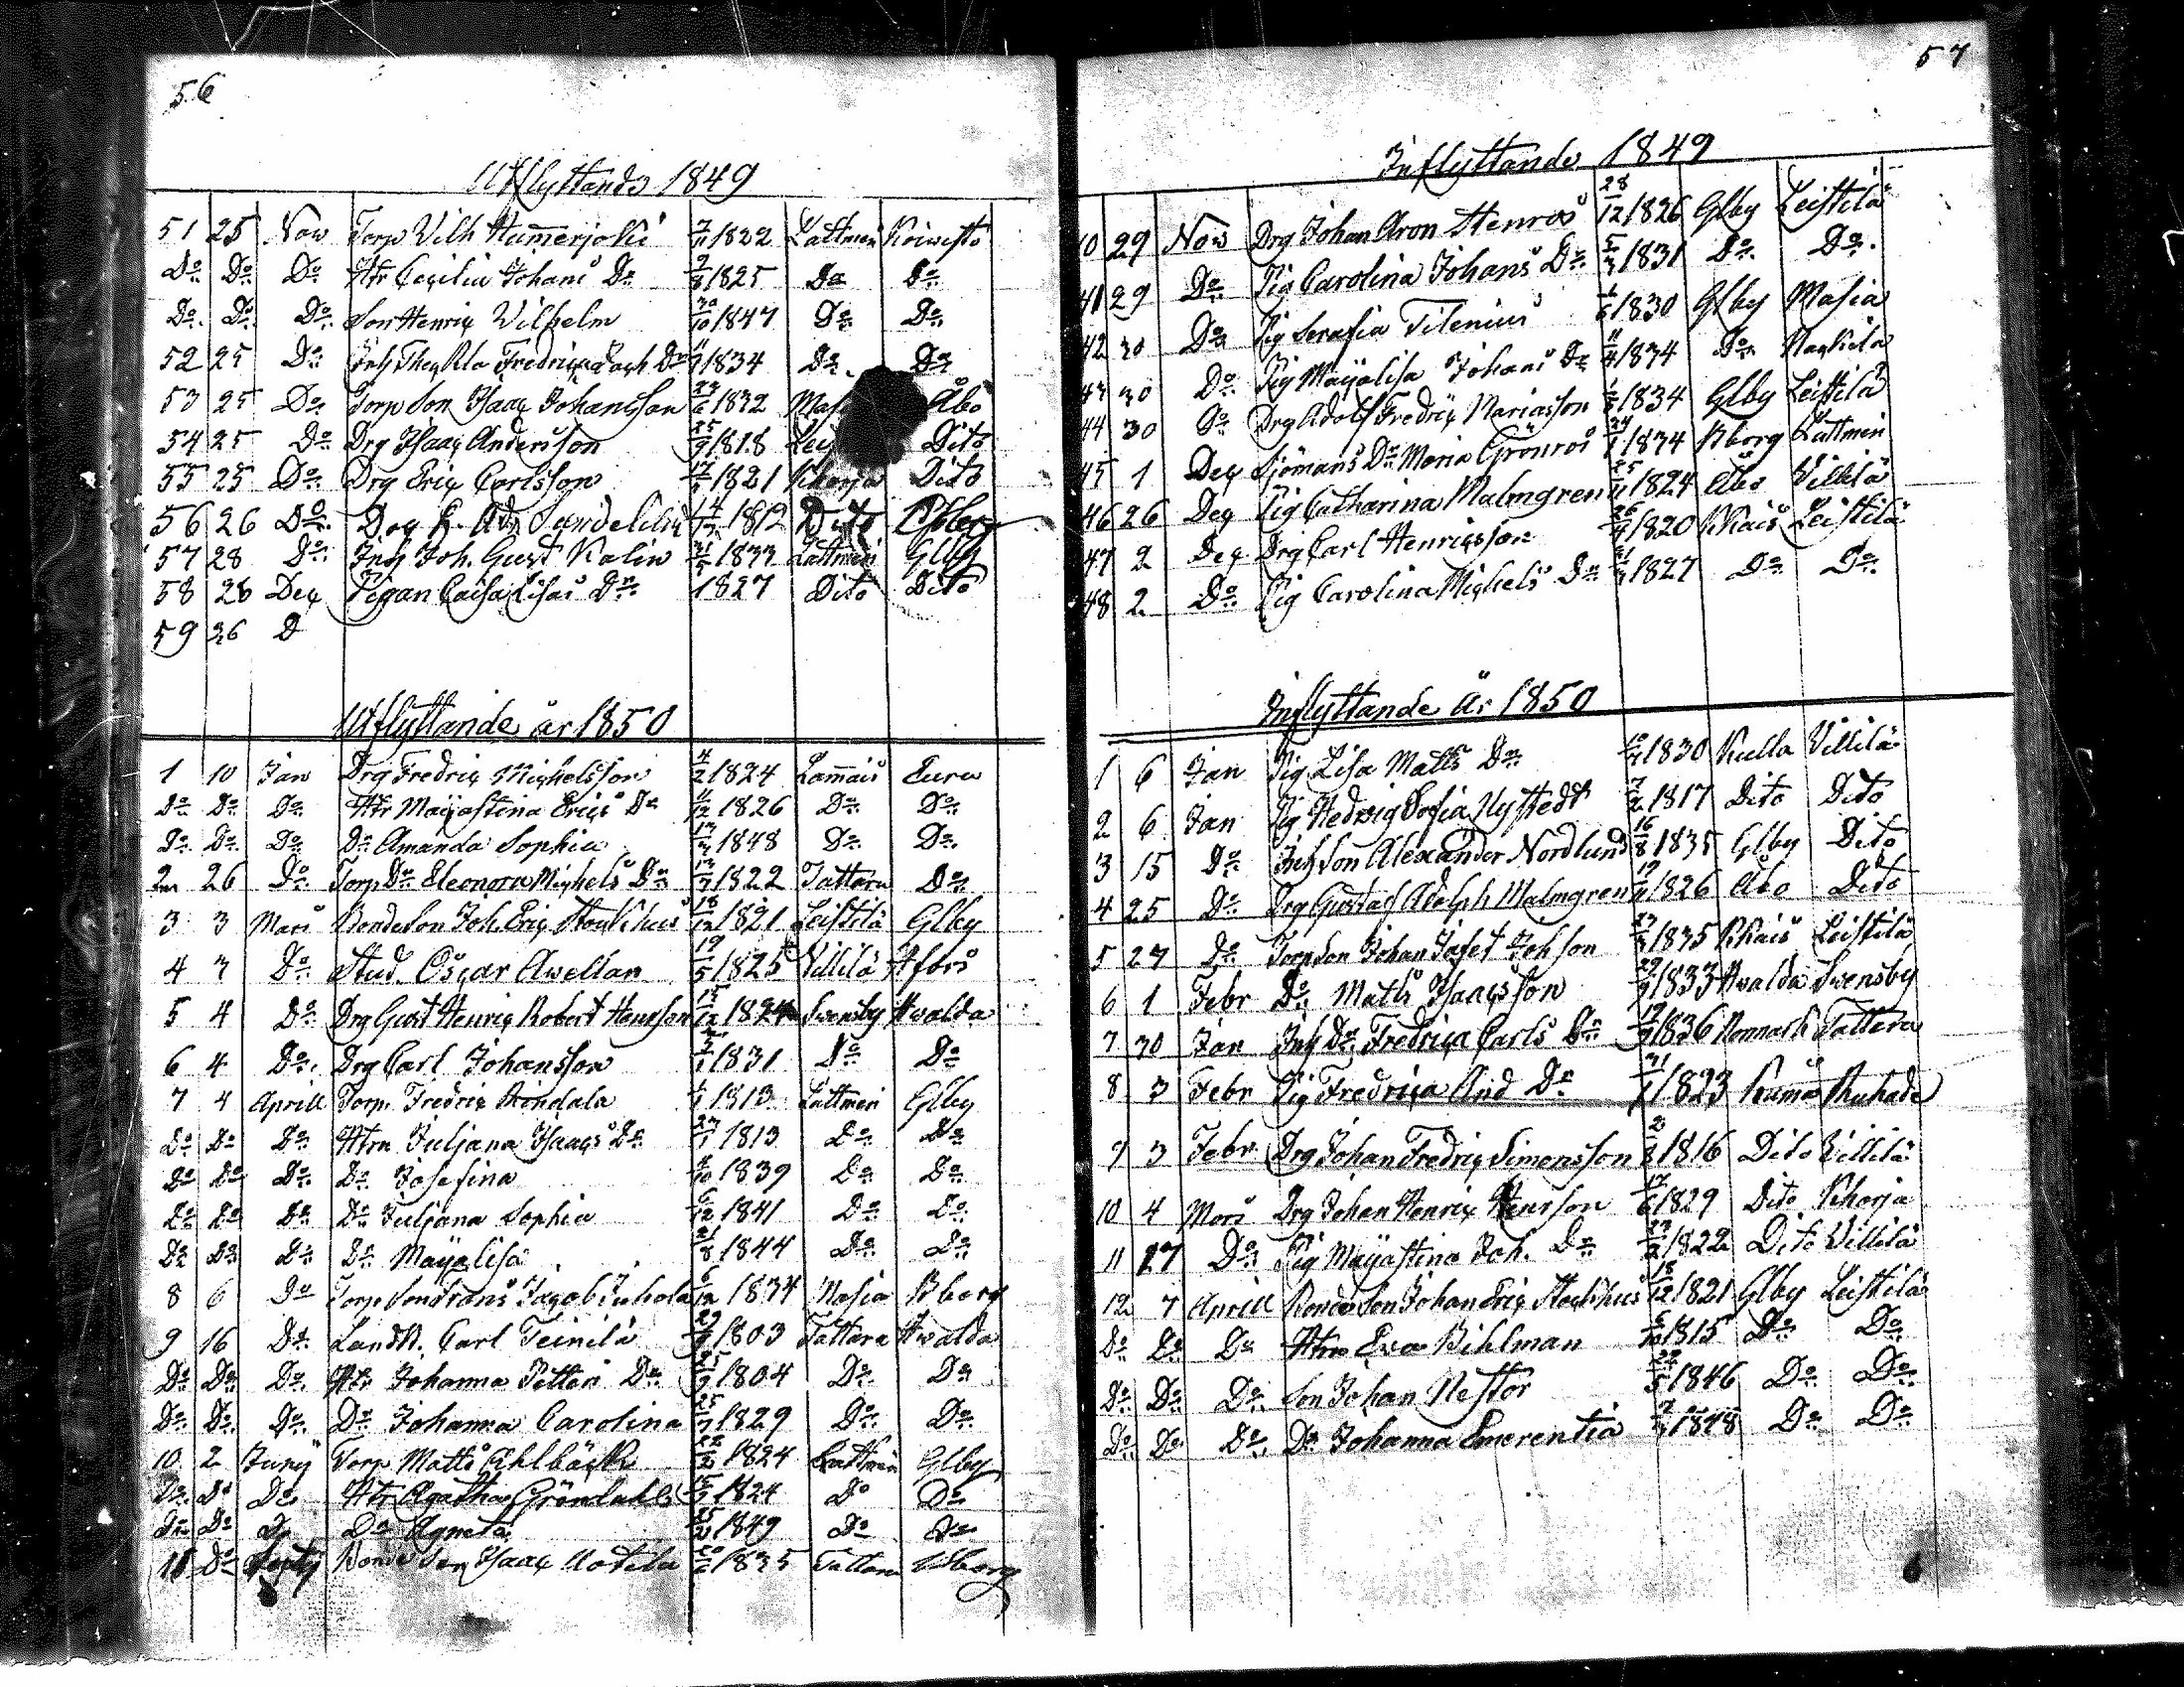 56
Utflyttande 1849
51 25 Now Torp Vilh Hammerjoki 1822 Lattmeri Koiwisto
Do Do Do Hr Cecilia Johans Dr 1825 Do Do
Do Do Do Son Henric Wilhelm 30/10 1847 Do Do
52 25 Do Inh Dr 1834 Do Do
53 25 Do Torp Son Isaac Johansson 1832 Åbo
54 25 Do Drg Isaac Andersson 25/9 1818 Dito
55 25 Do Drg Eric Carlsson 1821 Kharja Dito
56 26 Do Sundelin 1812 Dito
57 28 Do Inh Joh. Gust Kalin 1833 Lattmeri Glby
58 26 Dec Pigan Caisa Lisa Dr 1827 Dito Dito
59 26 D
Utflyttande år 1850
1 10 Jan Drg Fredric Michelsson 4/2 1824 Lammais Eura
Do Do Do Hr Majastina Erics Dr 11/12 1826 Do Do
Do Do Do Dr Amanda Sophia 1848 Do Do
2 26 Do Torp Dr Eleonora Michels Dr 1822 Tattara Do
3 3 Mars Bonde Son Joh. Eric 18/12 1821 Leistilä Glby
4 3 Do Stud. Oscar Awellan 19/5 1825 Villilä Hfors
5 4 Do Drg Gust Henric Robert Henrsson 1824 Swensby Hwalda
6 4 Do Drg Carl Johansson 1831 Do Do
7 4 Aprill Torp. Fredric Rindala 1813 Lattmeri Glby
Do Do Do Hrn Juljana Isaacs Dr 1813 Do Do
Do Do Do Dr Josefina 1839 Do Do
Do Do Do Dr Juljana Sophia 1841 Do Do
Do Do Do Dr Majalisa 1844 Do Do
8 6 Do Torp Son Frans Jacob Juhola 1834 Masia Bborg
9 16 Do Landb. Carl Teinilä 1803 Tattara Hwalda
Do Do Do Hr Johanna Petteri Dr 1804 Do Do
Do Do Do Dr Johanna Carolina 25/7 1829 Do Do
10 2 Juny Torp Matts Ahlbäck 1824 Lattmeri Glby
Do Do Do Hr Agatha Gröndahl 1824 Do Do
Do Do Do Dr Agneta 1849 Do Do
11 Do Bonde Son Isaac Uotila 1835 Tattara Bborg
57
Inflyttande 1849
40 29 Now Drg Johan Aron Henros 28/12 1826 Glby Leistilä
41 29 Do Pig Carolina Johans Dr 1831 Do Do
42 30 Do Pig Serafia Tilenius 1830 Glby Masia
43 30 Do Pig Majalisa Johans Dr 11/4 1834 Do
44 30 Do Drg Adolf Fredric Mariasson 1834 Glby Leistilä
45 1 Dec Sjömans Dr Maria Grönros 1834 Bborg Lattmeri
46 26 Dec Pig Catharina Malmgren 1824 Åbo Villilä
47 2 Dec Drg Carl Henricsson 1820 Kkais Leistilä
48 2 Do Pig Carolina Michels Dr 1827 Do Do
Inflyttande År 1850
1 6 Jan Pig Lisa Matts Dr 1830 Kulla Villilä
2 6 Jan Pig Hedwig Sofia Nystedt 1817 Dito Dito
3 15 Do Inh Son Alexander Nordlund 16/8 1835 Glby Dito
4 25 Do Drg Gustaf Adolph Malmgren 1826 Åbo Dito
5 27 Do Torp Son Johan Jafet Joh son 1835 Kkais Leistilä
6 1 Febr Do Matts Isaacsson 1833 Hwalda Swensby
7 30 Jan Inh Dr Fredrica Carls Dr 1836 Tattara
8 3 Febr Pig Fredrica And Dr 1823 Kumo Ruhade
9 3 Febr Drg Johan Fredric Simonsson 1816 Dito Villilä
10 4 Mars Drg Johan Henric Henrson 17/6 1829 Dito Kharja
11 17 Do Pig Majastina Joh. Dr 1822 Dito Villilä
12 7 Aprill Bonde Son Johan Eric 18/12 1821 Glby Leistilä
Do Do Do Hrn Ewa Bihlman 1815 Do Do
Do Do Do Son Johan Nestor 1846 Do Do
Do Do Do Dr Johanna Emerentia 1848 Do Do